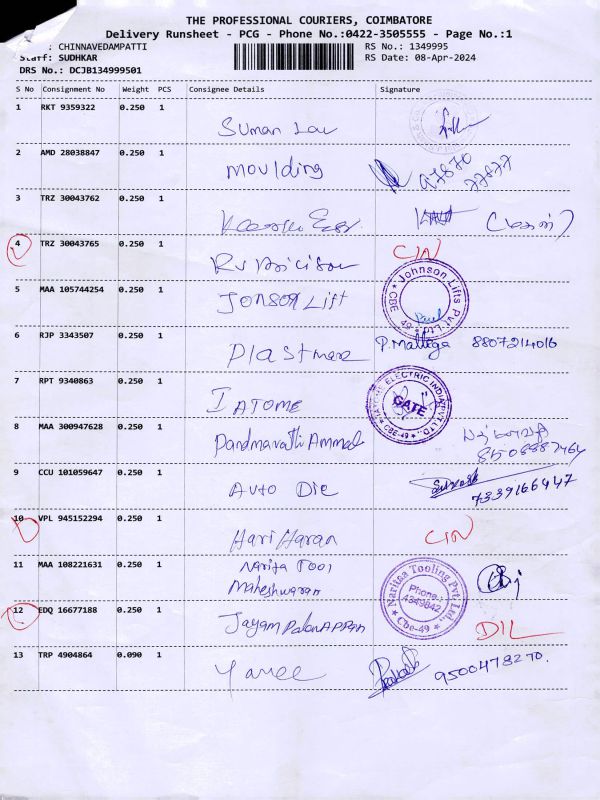 THE PROFESSIONAL COURIERS, COIMBATORE
Delivery Runsheet - PCG - Phone No.:0422-3505555 - Page No.:1
: CHINNAVEDAMPATTI
RS No.: 1349995
Staff: SUDHKAR
RS Date: 08-Apr-2024
DRS No.: DCJB134999501
S No Consignment No Weight PCS Consignee Details Signature
1 RKT 9359322 0.250 1
Suman
2 AMD 28038847 0.250 1
moulding 97870
77877
3 TRZ 30043762 0.250 1
4 TRZ 30043765 0.250 1 CIN
RV
5 MAA 105744254 0.250 1
Jonson Lift
Johnson Lifts Pvt Ltd
CBE 49
6 RJP 3343507 0.250 1
Plastmare P. Mallega 8807214016
7 RPT 9340863 0.250 1
IATOME
ELECTRIC INDIA PVT. LTD.
GATE
CBE-49
8 MAA 300947628 0.250 1
Pandmavathi Ammal
9 CCU 101059647 0.250 1
Auto Die 7339166447
10 VPL 945152294 0.250 1
Hari Haran CIN
11 MAA 108221631 0.250 1
Narita Tool
Maheshwaran
Naritaa Tooling Pvt. Ltd.,
Phone.:
Cbe-49
12 EDQ 16677188 0.250 1
Jayam Palanappan DIL
13 TRP 4904864 0.090 1
Yanee 9500478270.